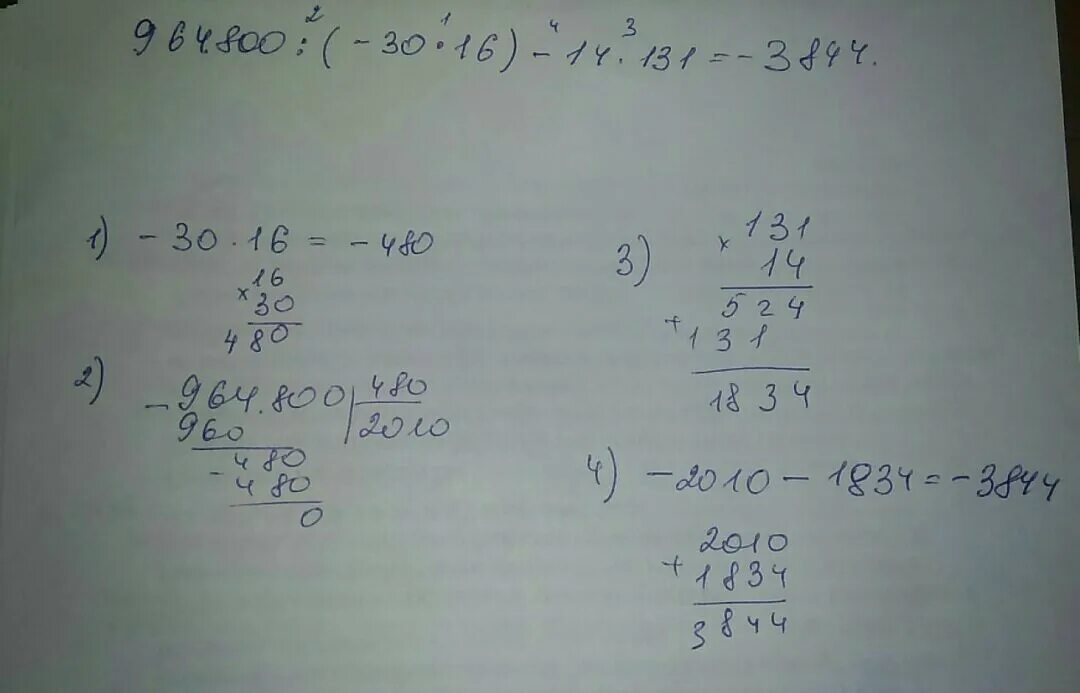 964800:(-30·16)-14·131=-3844.
2 1 4 3
1) -30·16 = -480
16
×30
480
2)
-964.800 | 480
960 | 2010
-480
480
0
3)
×131
14
524
+131
1834
4) -2010-1834=-3844
2010
+1834
3844